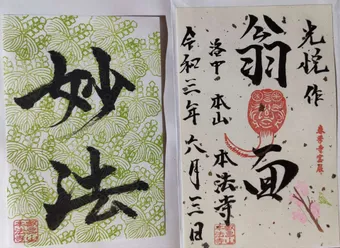 光悦作
翁面
洛中 本山 本法寺
令和三年六月三日
妙法